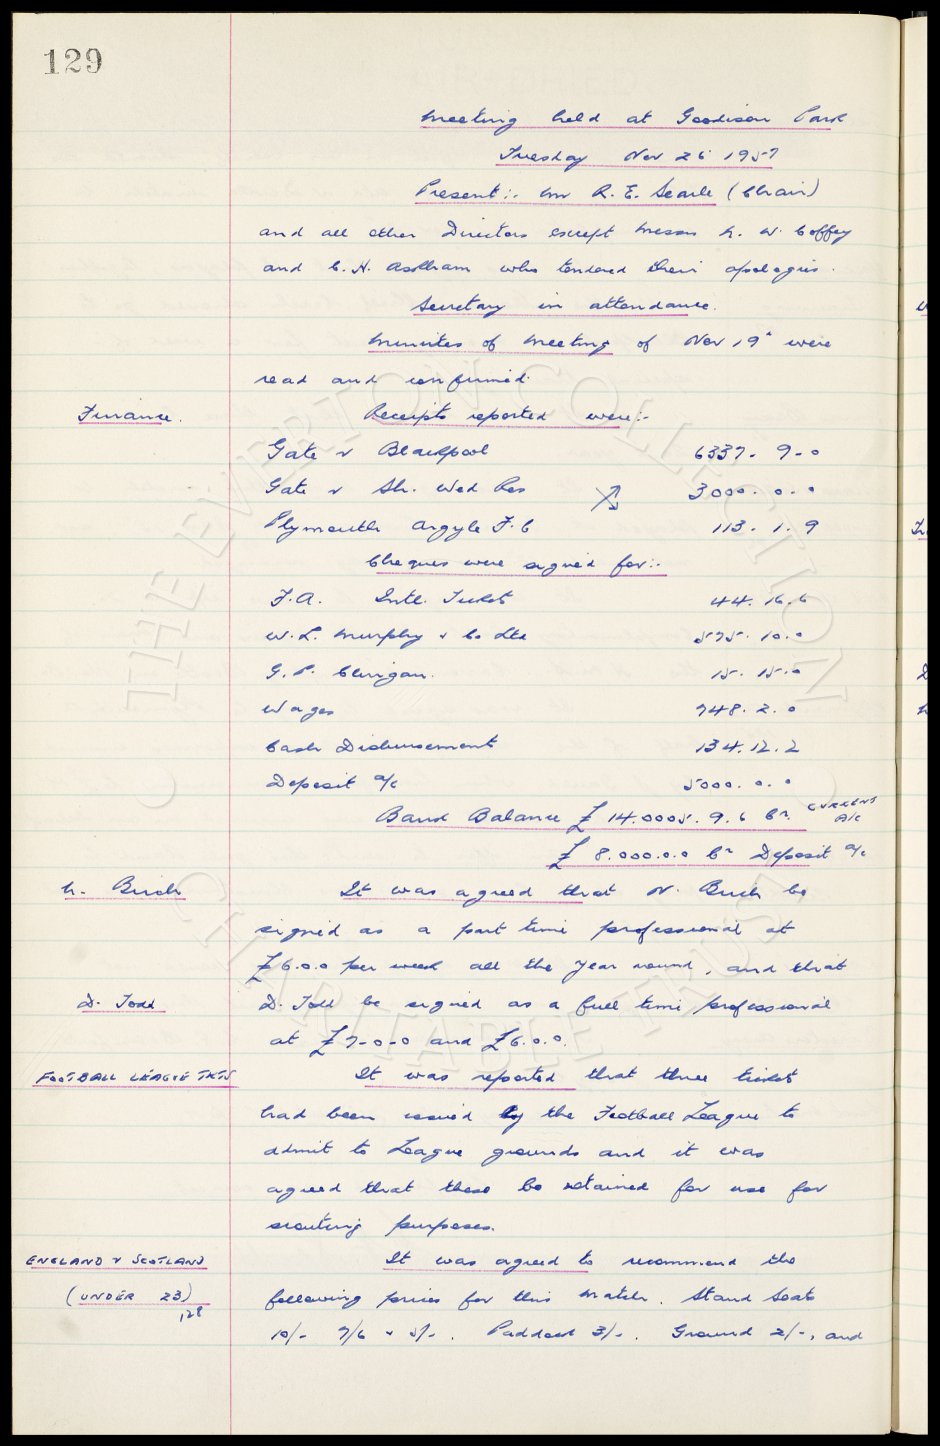 129
Meeting held at Goodison Park
Tuesday Nov 26 1957
Present:- Mr R. E. Searle (Chair)
and all other Directors except Messrs N. W. Coffey
and C. H. Askham who tendered their apologies.
Secretary in attendance.
Minutes of Meeting of Nov 19th were
read and confirmed.
Finance. Receipts reported were:-
Gate v Blackpool 6337- 9-0
Gate v Sh. Wed Res 3000. 0. 0
Plymouth Argyle F.C 113. 1. 9
Cheques were signed for:-
F.A. Intl. Tickets 44. 16. 6
W. L. Murphy & Co Ltd 575. 10. 0
G. P. 15. 15. 0
Wages 748. 2. 0
Cash Disbursement 134. 12. 2
Deposit a/c 5000. 0. 0
Bank Balance £ 14.0005. 9. 6 Cr. CURRENT A/c
£ 8.000.0.0 Cr Deposit a/c
N. Birch It was agreed that N. Birch be
signed as a part time professional at
£6.0.0 per week all the year round, and that
D. Todd D. Todd be signed as a full time professional
at £7-0-0 and £6.0.0.
FOOTBALL LEAGUE TKTS It was reported that three tickets
had been issued by the Football League to
admit to League grounds and it was
agreed that these be retained for use for
scouting purposes.
ENGLAND v SCOTLAND It was agreed to recommend the
(UNDER 23) following prices for this match. Stand Seats
128
10/- 7/6 & 5/-. Paddock 3/-. Ground 2/-, and
THE EVERTON COLLECTION
CHARITABLE TRUST